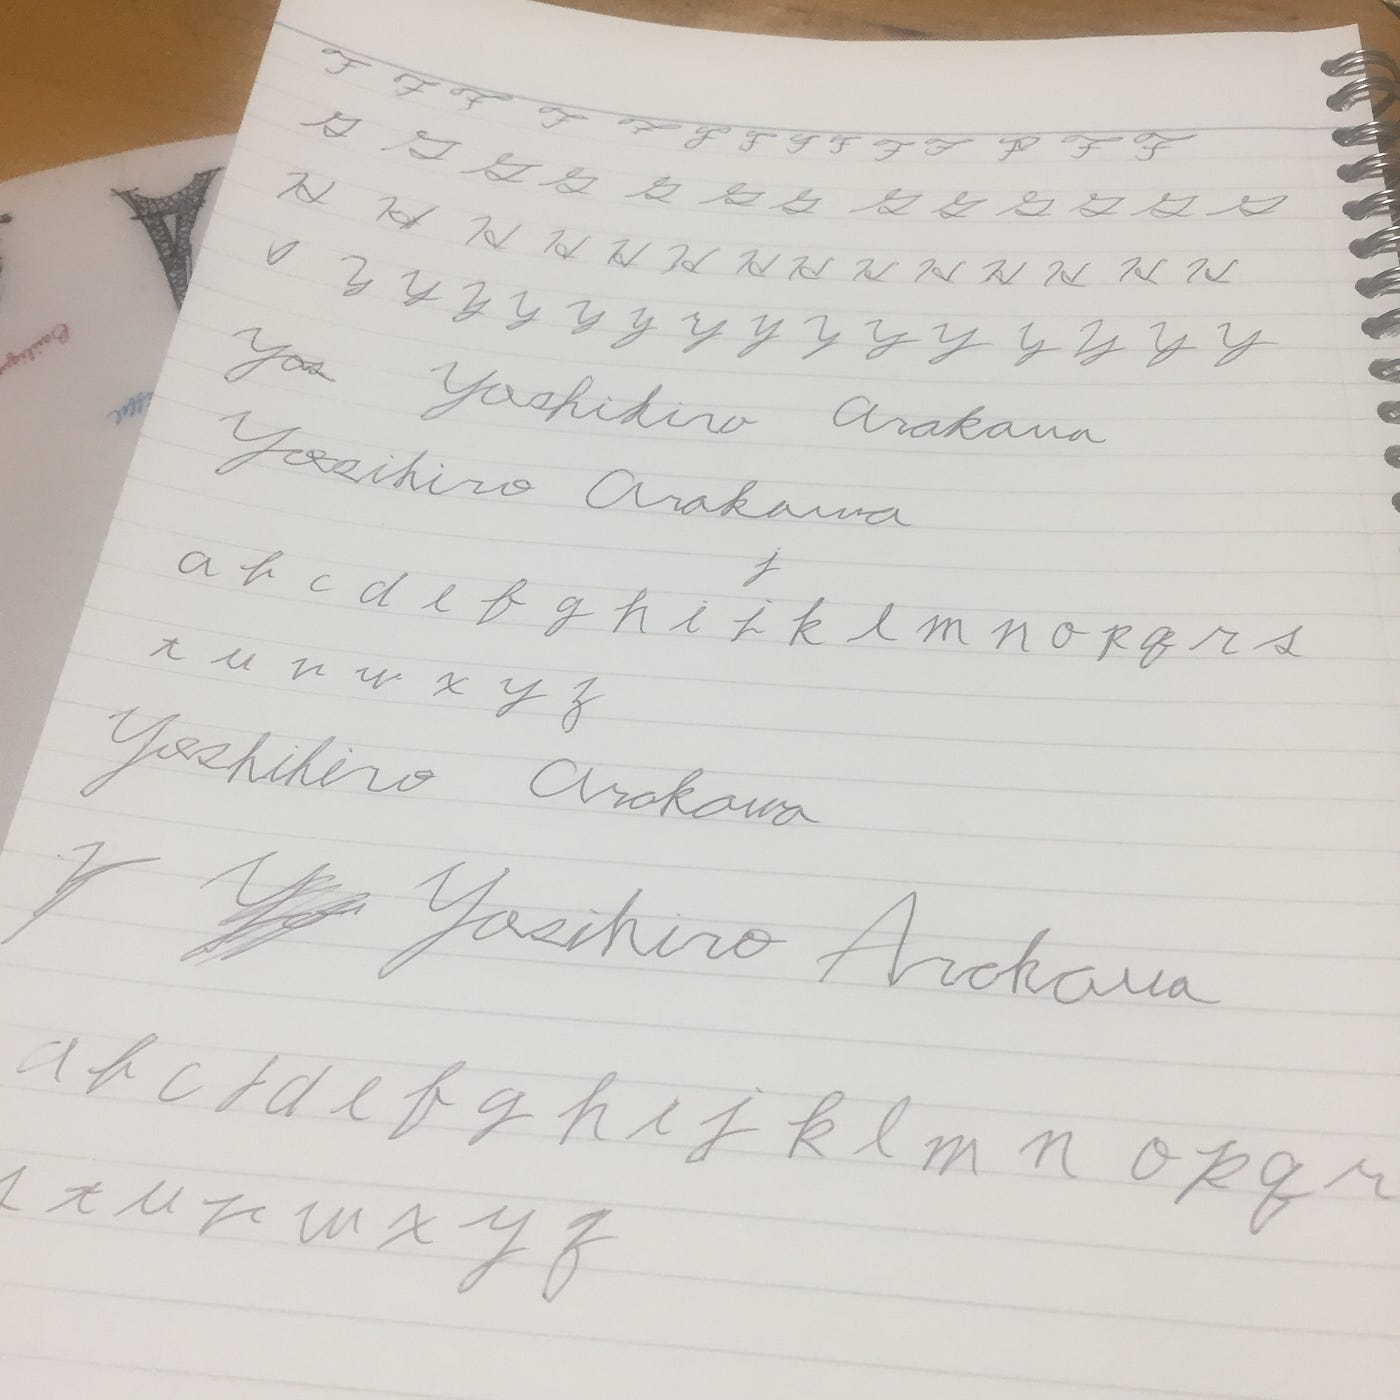 F F F F F F F F F F F P F F
G G G G G G G G G G G G G
H H H H H H H H H H H H H H
Y Y Y Y Y Y Y Y Y Y Y Y Y Y Y
Yos Yoshihiro Arakawa
Yosihiro Arakawa
j
a b c d e f g h i j k l m n o p q r s
t u v w x y z
Yoshihiro Arakawa
Y Yo Yosihiro Arakawa
a b c t d e f g h i j k l m n o p q r
s t u v w x y z